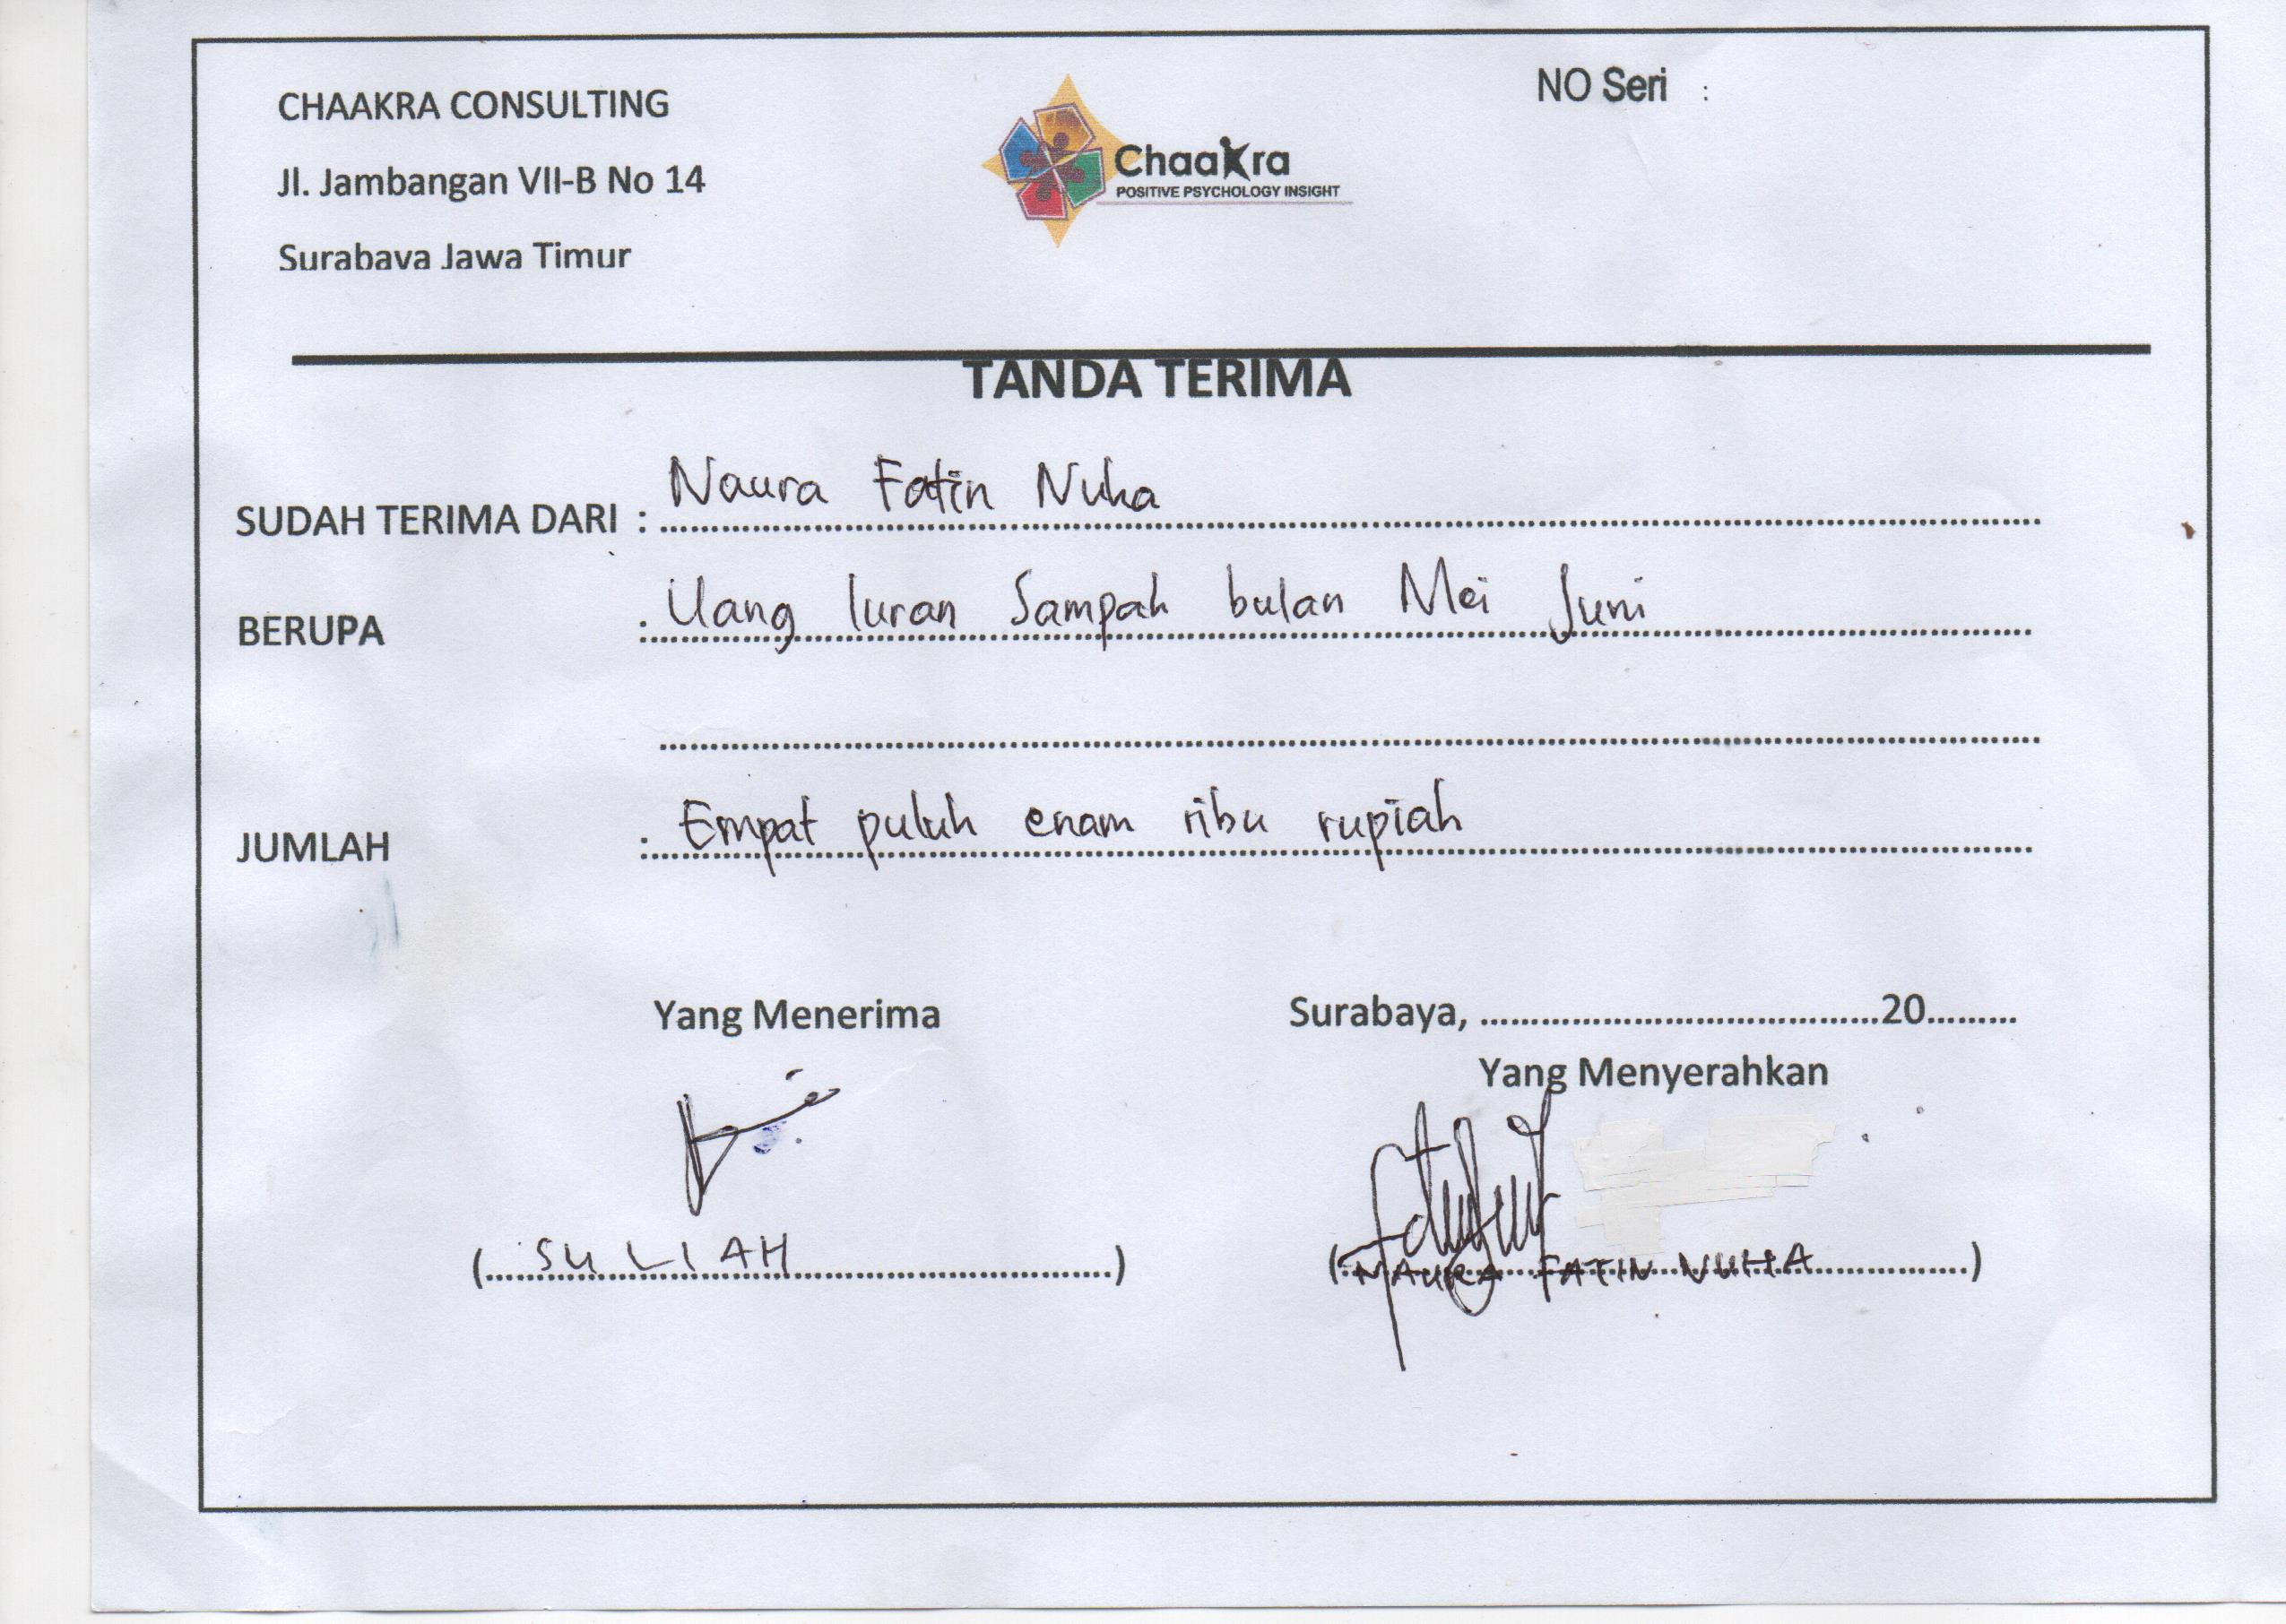 CHAAKRA CONSULTING
Jl. Jambangan VII-B No 14
Surabaya Jawa Timur
Chaakra
POSITIVE PSYCHOLOGY INSIGHT
NO Seri :
TANDA TERIMA
SUDAH TERIMA DARI : Naura Fatin Nuha
BERUPA : Uang Iuran Sampah bulan Mei Juni
JUMLAH : Empat puluh enam ribu rupiah
Yang Menerima
Surabaya, ........................................20.........
Yang Menyerahkan
(SULIAH)
(NAURA FATIN NUHA)